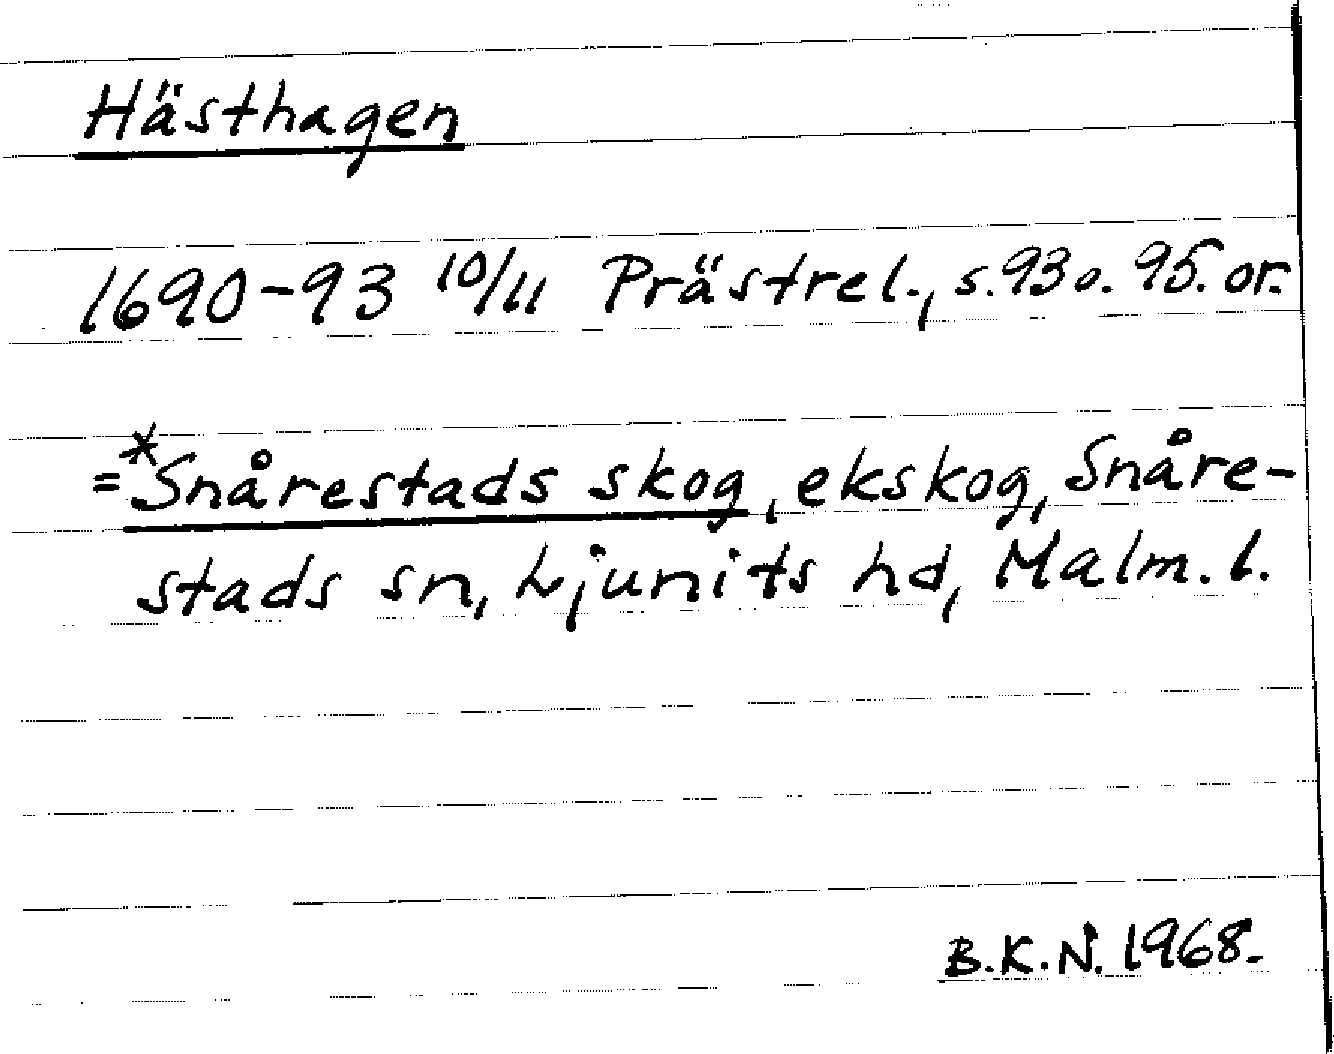 Hästhagen
1690-93 10/11 Prästrel., s. 93 o. 95. or.
=*Snårestads skog, ekskog, Snåre-
stads sn, Ljunits hd, Malm. l.
B.K.N. 1968.